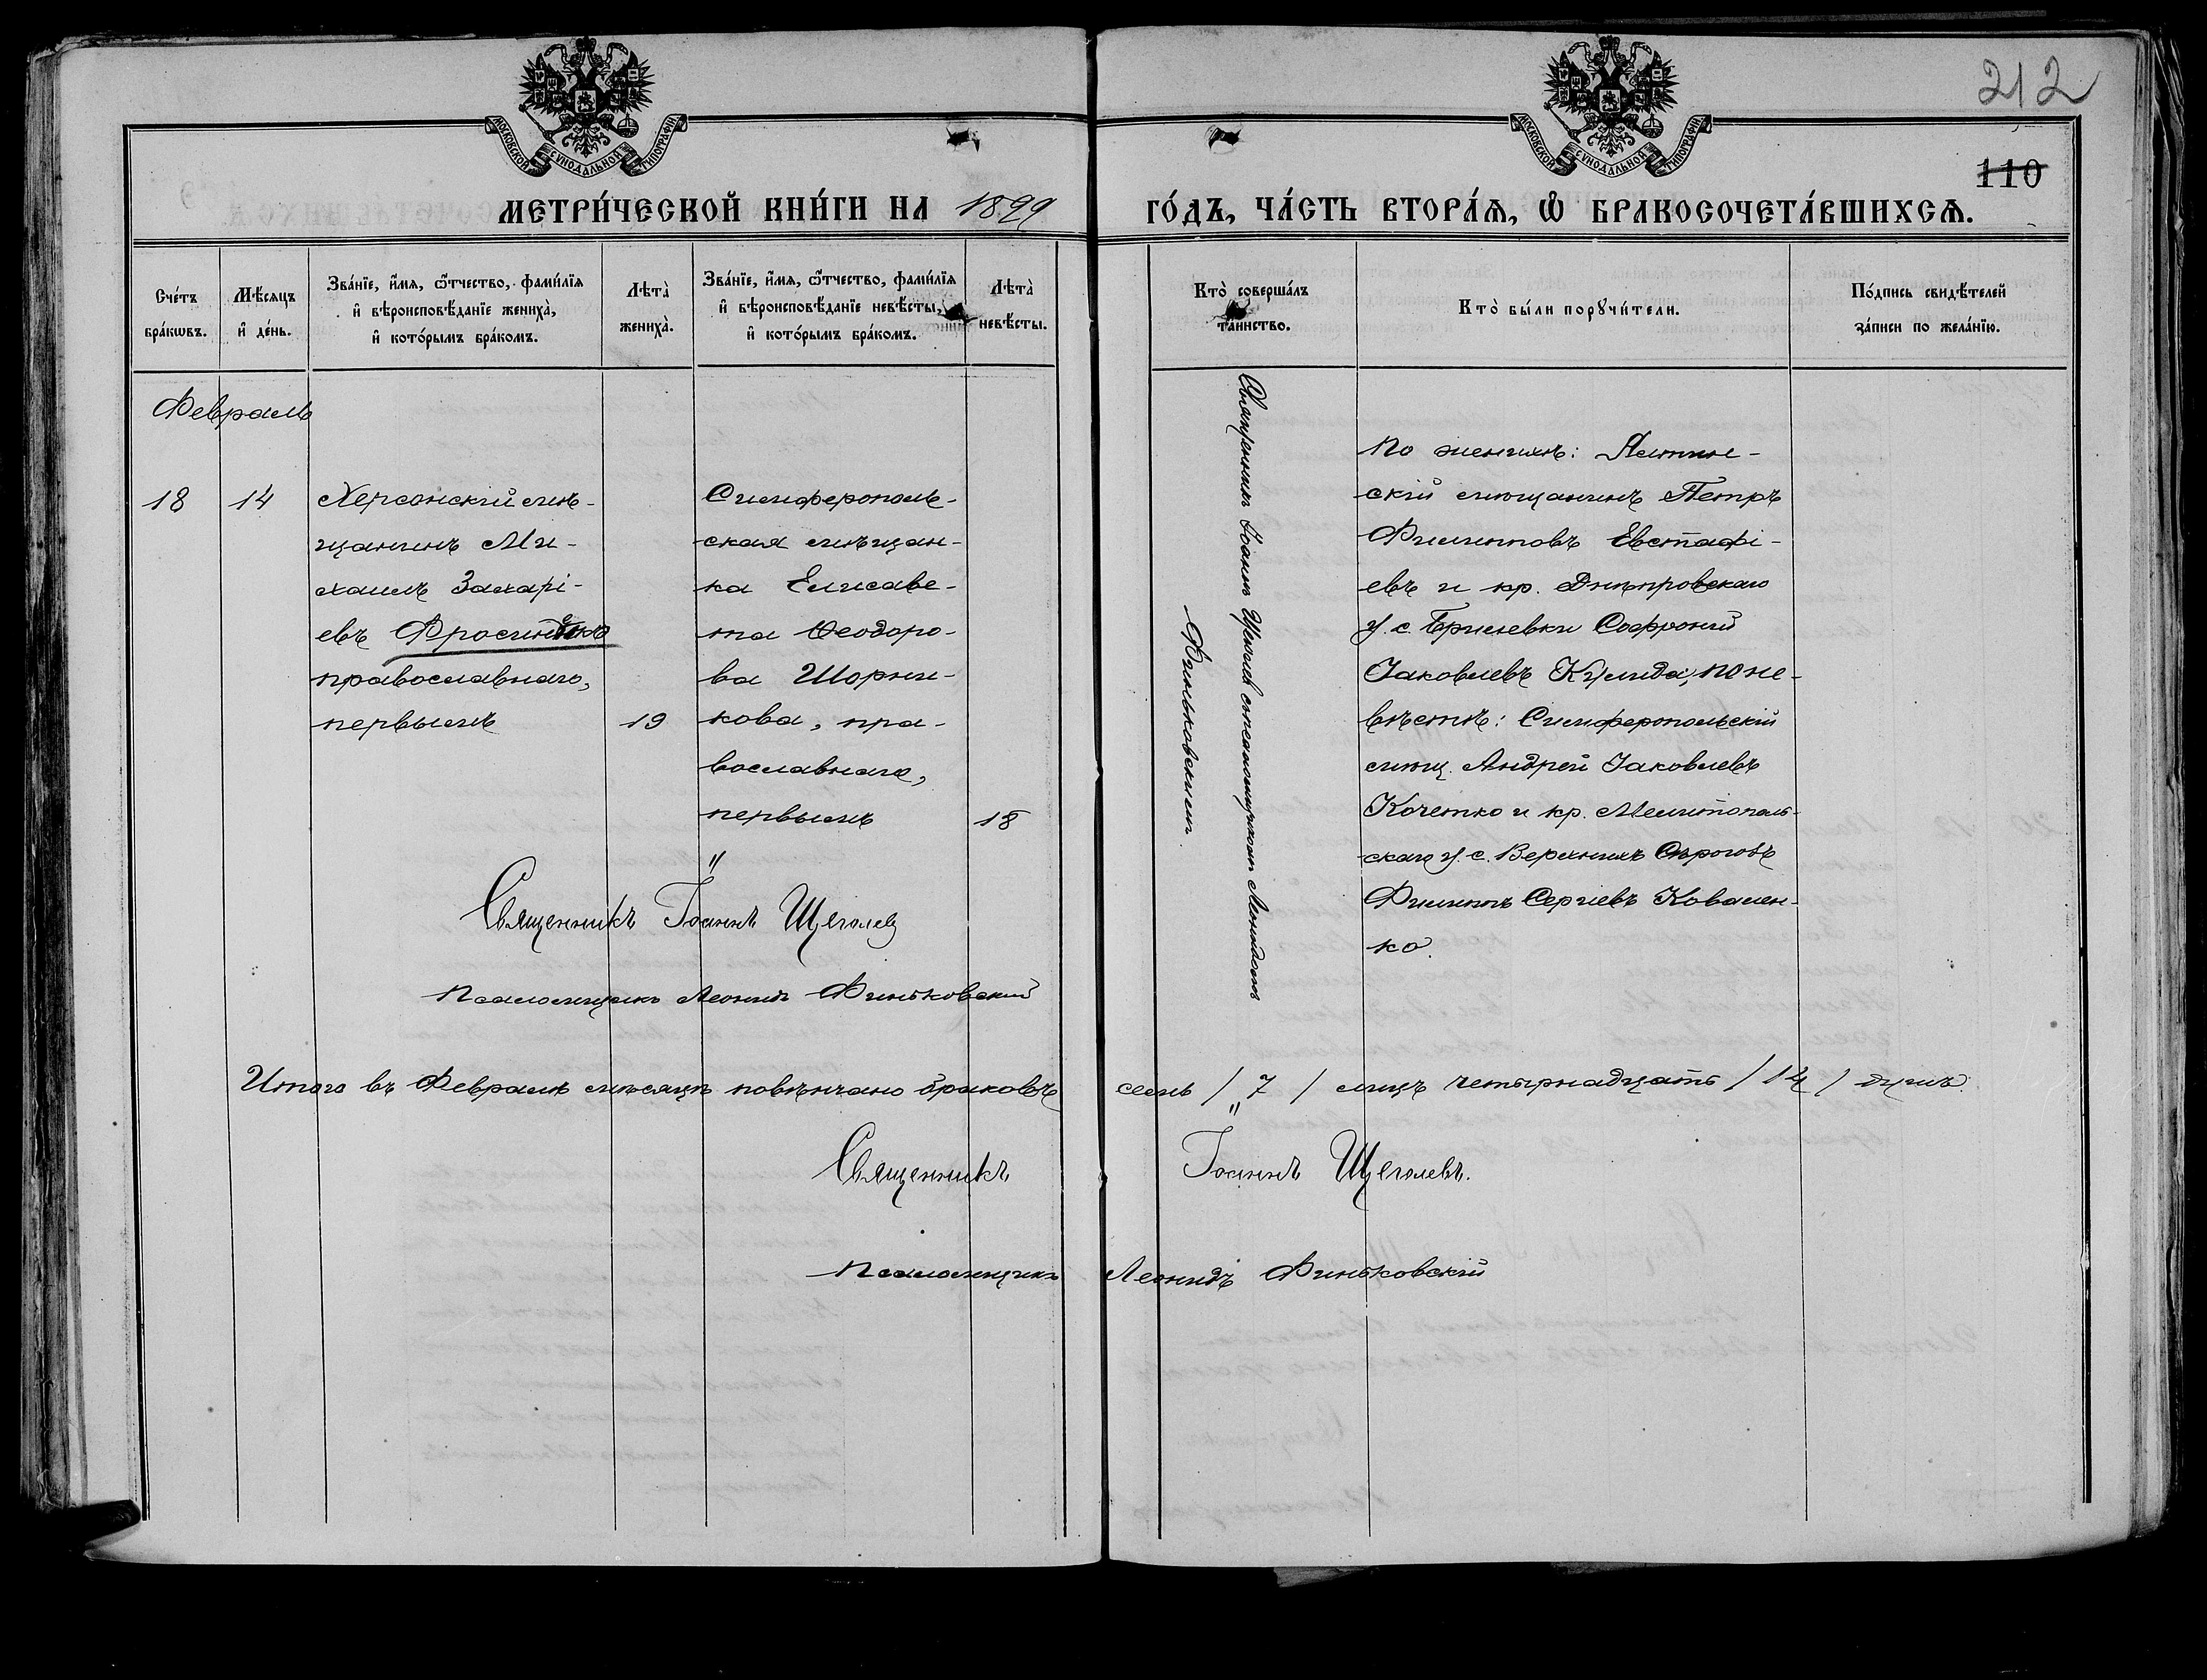 212
110
МОСКОВСКОЙ СѴНОДАЛЬНОЙ ТИПОГРАФІИ
МОСКОВСКОЙ СѴНОДАЛЬНОЙ ТИПОГРАФІИ
МЕТРИ́ЧЕСКОЙ КНИ́ГИ НА 1899 ГО́ДЪ, ЧА́СТЬ ВТОРА́Ѧ, Ѽ БРАКОСОЧЕТА́ВШИХСѦ.
Сче́тъ
бра́кѡвъ.
Мѣ́сяцъ
и҆ де́нь.
Зва́нїе, и҆́мя, ѻ҆́тчество, фами́лїя
и҆ вѣроисповѣ́данїе жениха̀,
и҆ кото́рымъ бра́комъ.
Лѣта̀
жениха̀.
Зва́нїе, и҆́мя, ѻ҆́тчество, фами́лїя
и҆ вѣроисповѣ́данїе невѣ́сты,
и҆ кото́рымъ бра́комъ.
Лѣта̀
невѣ́сты.
Кто̀ соверша́лъ
та́инство.
Кто̀ бы́ли порꙋчи́тели.
По́дпись свидѣ́телей
за́писи по жела́нїю.
Февраль
18
14
Херсонскій мѣ-
щанинъ Ми-
хаилъ Захарі-
евъ
православнаго,
первымъ
19
Симферополь-
ская мѣщан-
ка Елисаве-
та Ѳеодоро-
ва Шорни-
кова, пра-
вославнаго,
первымъ
18
Священникъ Іоаннъ Щеголев съ псаломщикомъ Леонидомъ
Финьковскимъ.
По женихѣ:
скій мѣщанинъ Петръ
Филипповъ Евстафі-
евъ и кр. Днѣпровскаго
у. с. Брилевки Софроній
Іаковлевъ Кулида, по не-
вѣстѣ: Симферопольскій
мѣщ. Андрей Іаковлевъ
Кочетко и кр. Мелитополь-
скаго у. с. Верхнихъ Сѣрогозъ
Филиппъ Сергіевъ Ковален-
ко.
Священникъ Іоаннъ Щеголев
Псаломщикъ Леонидъ Финьковскій
Итого въ Февралѣ мѣсяцѣ повѣнчано браковъ семь / 7 / лицъ четырнадцать / 14 / душъ.
Священникъ Іоаннъ Щеголевъ.
Псаломщикъ Леонидъ Финьковскій